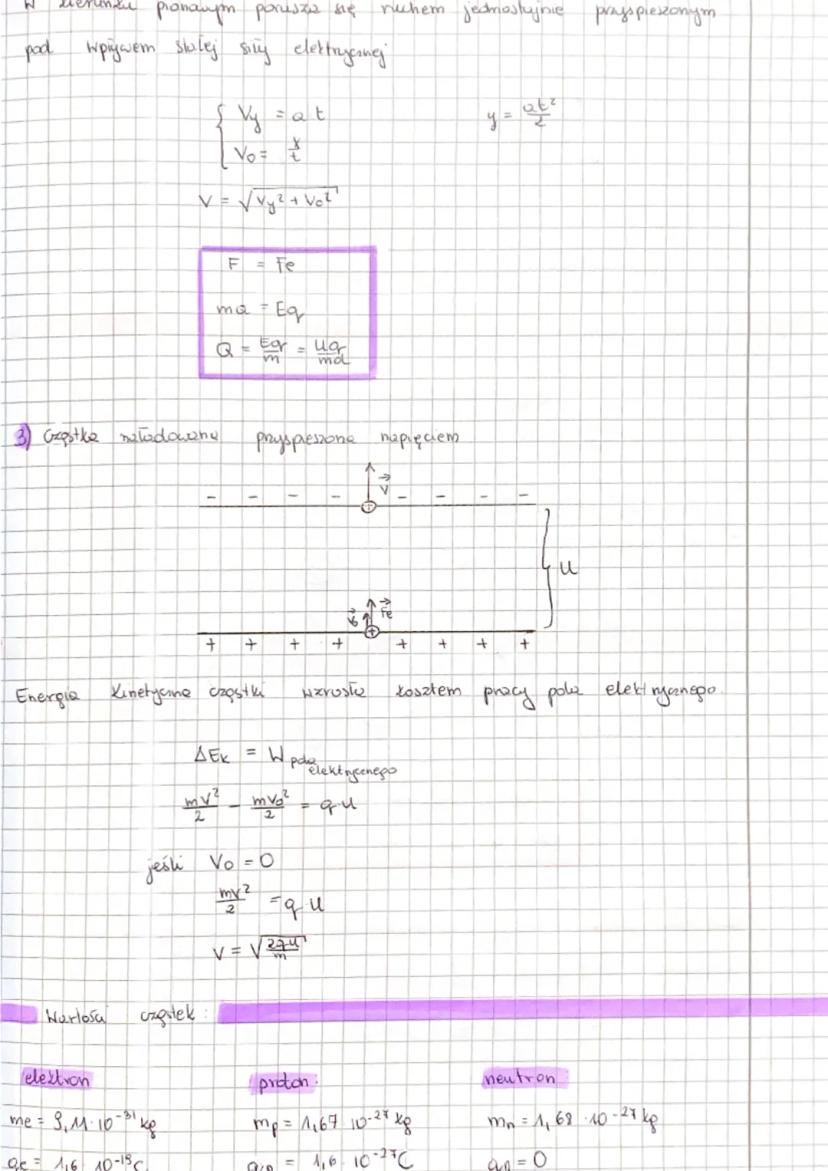 W kierunku pionowym porusza się ruchem jednostajnie przyspieszonym
pod wpływem stałej siły elektrycznej
{ Vy = at y = at²/2
V0 = x/t
V = √(Vy² + V0²)
F = Fe
ma = Eq
Q = Eq/m = Uq/md
3) Cząstka naładowana przyspieszona napięciem
- - - - V⃗ - - - -
U
V⃗0 F⃗e
+ + + + + + + + +
Energia kinetyczna cząstki wzrosła kosztem pracy pola elektrycznego.
ΔEk = W pola elektrycznego
mv²/2 - mv0²/2 = qU
jeśli V0 = 0
mv²/2 = qU
V = √(2qU/m)
Wartości cząstek:
elektron proton: neutron
me = 9,11·10⁻³¹ kg mp = 1,67 10⁻²⁷ kg mn = 1,68 · 10⁻²⁷ kg
qe = 1,6 10⁻¹⁹ C qp = 1,6 10⁻²⁷ C qn = 0